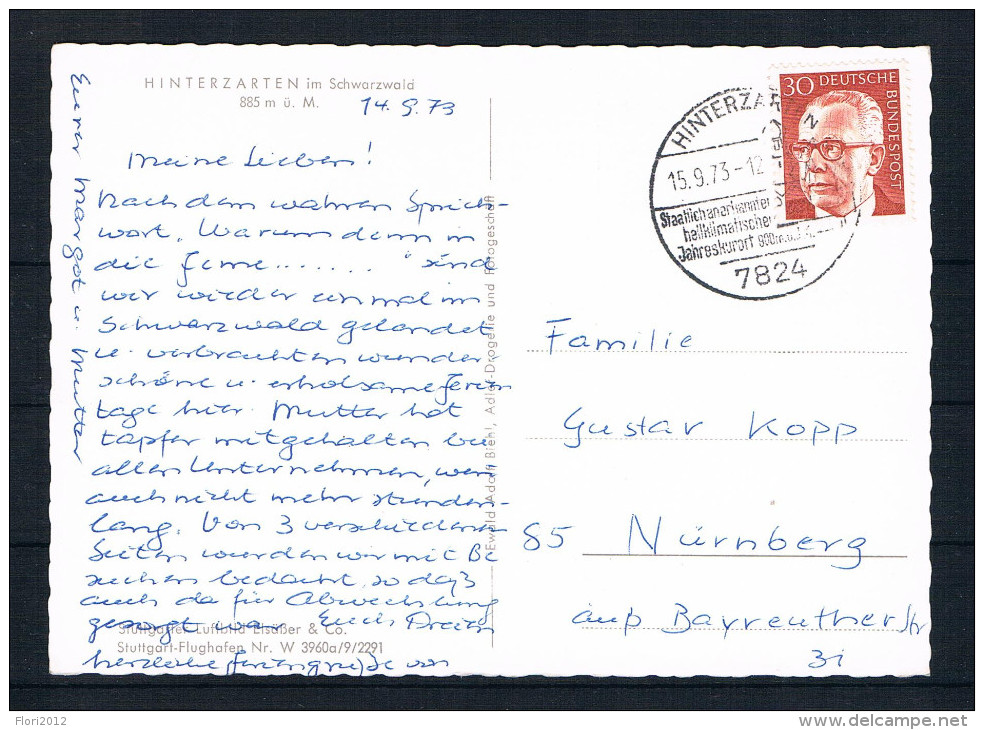 HINTERZARTEN im Schwarzwald
885 m ü. M.
14.9.73
Meine Lieben!
Nach dem wahren Sprich-
wort, Warum denn in
die Ferne ......." sind
wir wieder einmal im
Schwarzwald gelandet
u. verbrachten wunder
schöne u. erholsame Ferien
tage hier. Mutter hat
tapfer mitgehalten bei
allen Unternehmen, wenn
auch nicht mehr stunden-
lang. Von 3 verschiedenen
Seiten wurden wir mit Be
suchen bedacht, so daß
auch da für Abwechslung
gesorgt war. Euch Dreien
herzliche Feriengrüße von
Eurer Margot u. Mutter
Stuttgarter Luftbild Elsäßer & Co.
Stuttgart-Flughafen Nr. W 3960a/9/2291
Ewald Adolf Biehl, Adler-Drogerie und Fotogeschäft
HINTERZARTEN
15.9.73-12
Staatlich anerkannter
heilklimatischer
Jahreskurort 900m
7824
30 DEUTSCHE BUNDESPOST
Familie
Gustav Kopp
85 Nürnberg
Bayreuther Str
31
Flori2012
delcampe.net